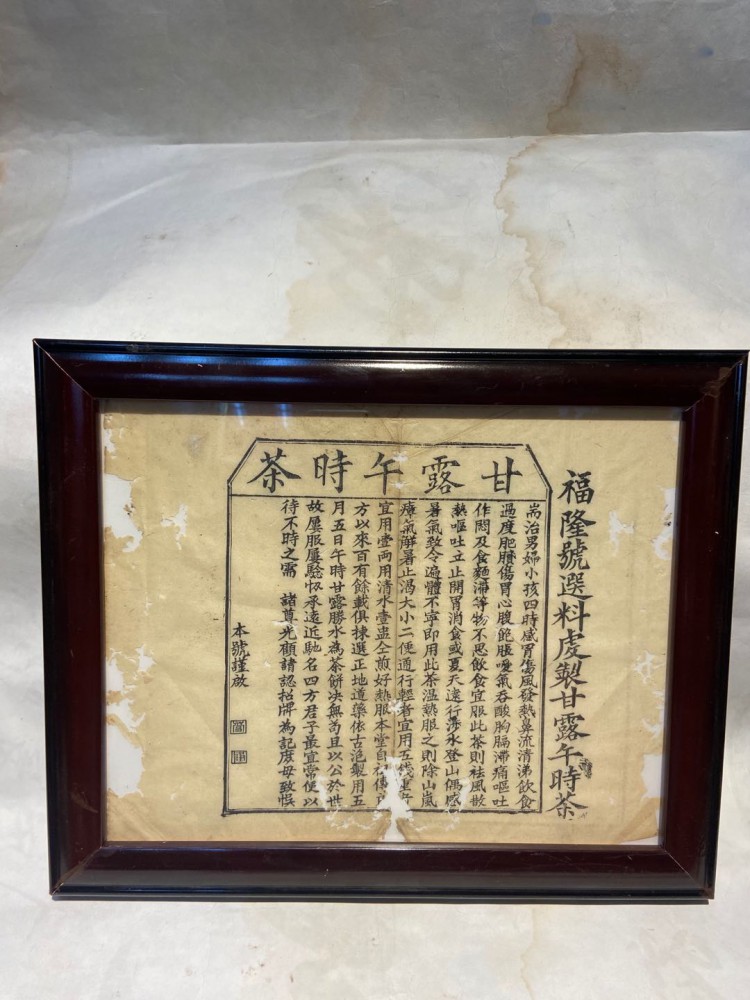 福隆號選料虔製甘露午時茶
甘露午時茶
耑治男婦小孩四時感冒傷風發熱鼻流清涕飲食
過度肥膩傷胃心腹飽脹噯氣吞酸胸膈滯痛嘔吐
作悶及食麵滯等物不思飲食宜服此茶則祛風散
熱嘔吐立止開胃消食或夏天遠行涉水登山偶感
暑氣致令遍體不寧即用此茶温熱服之則除山嵐
瘴氣解暑止渴大小二便通行輕者宜用五錢重者
宜用壹両用清水壹盅仝煎好熱服本堂自
方以來百有餘載俱揀選正地道藥依古泡製用五
月五日午時甘露勝水為茶餅决無苟且以公於世
故屢服屢驗忟承遠近馳名四方君子最宜常便以
待不時之需 諸尊光顧請認招牌為記庶毋致悞
本號謹啟